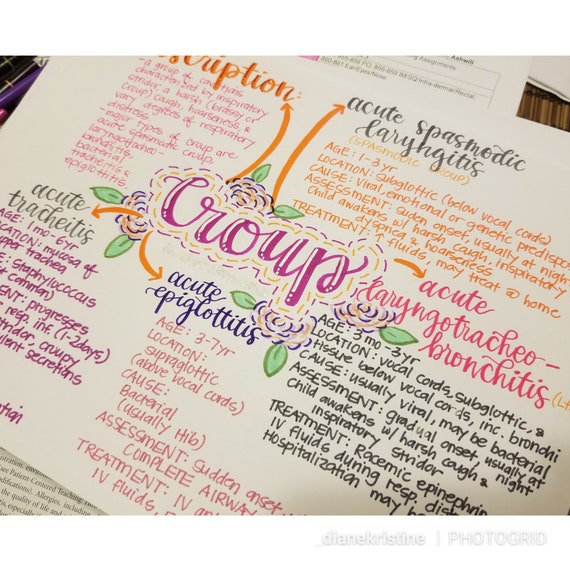 Ashwill
856-858 PO, 858-859 IM/SQ/Intra-dermal/Rectal
860-861 Ear/Eyes/Nose
scription:
- a group of conditions
characterized by inspiratory
stridor, a harsh (brassy or
croup) cough, hoarseness, &
varying degrees of respiratory
distress
- major types of croup are
acute spasmodic croup,
laryngotracheo-
bronchitis,
bacterial
tracheitis &
epiglottitis
acute spasmodic
laryngitis
(spasmodic croup)
AGE: 1-3yr
LOCATION: Subglottic (below vocal cords)
CAUSE: Viral, emotional or genetic predispos
ASSESSMENT: Sudden onset, usually at night
Child awakens w/ harsh cough, inspiratory
& hoarseness
TREATMENT: fluids, may treat @ home
Croup
acute
tracheitis
AGE: 1 mo-6yr
LOCATION: mucosa of
upper trachea
Staphylococcus
common)
progresses
resp. inf. (1-2 days)
stridor, croupy
secretions
acute
epiglottitis
AGE: 3-7yr
LOCATION:
supraglottic
(above vocal cords)
CAUSE:
Bacterial
(usually Hib)
ASSESSMENT: Sudden onset
COMPLETE AIRWAY
TREATMENT: IV
IV fluids,
acute
laryngotracheo-
bronchitis
AGE: 3 mo-3yr
LOCATION: vocal cords, subglottic, &
tissue below vocal cords, inc. bronchi
CAUSE: usually viral, may be bacterial
ASSESSMENT: gradual onset, usually at
Child awakens w/ harsh cough & night
inspiratory stridor
TREATMENT: Racemic epinephrine
IV fluids during resp. dist
Hospitalization may be
_dianekristine | PHOTOGRID